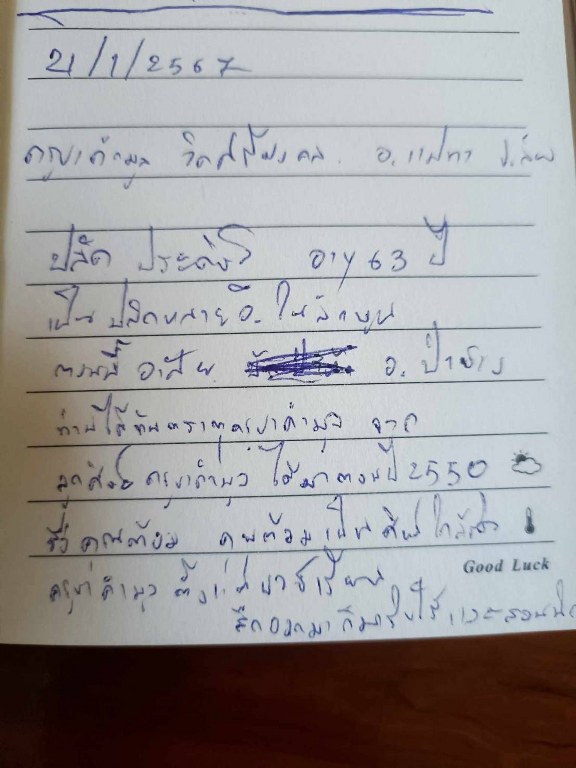 21/1/2567
ครูบาคำมูล วัดศรีมงคล อ.แม่ทา จ.ลำพูน
ปลัด ประดิษฐ์ อายุ 63 ปี
เป็น ปลัดหลาย อ. ในลำพูน
ตอนนี้ อาศัย อ. ป่าซาง
ท่านได้ ครูบาคำมูล จาก
ลูกศิษย์ ครูบาคำมูล ได้มาตอนปี 2550
ชื่อ คุณต้อม คุณต้อม เป็น ศิษย์ใกล้ชิด
Good Luck
ครูบาคำมูล ตั้งแต่บวชเรียน
สึกออกมา